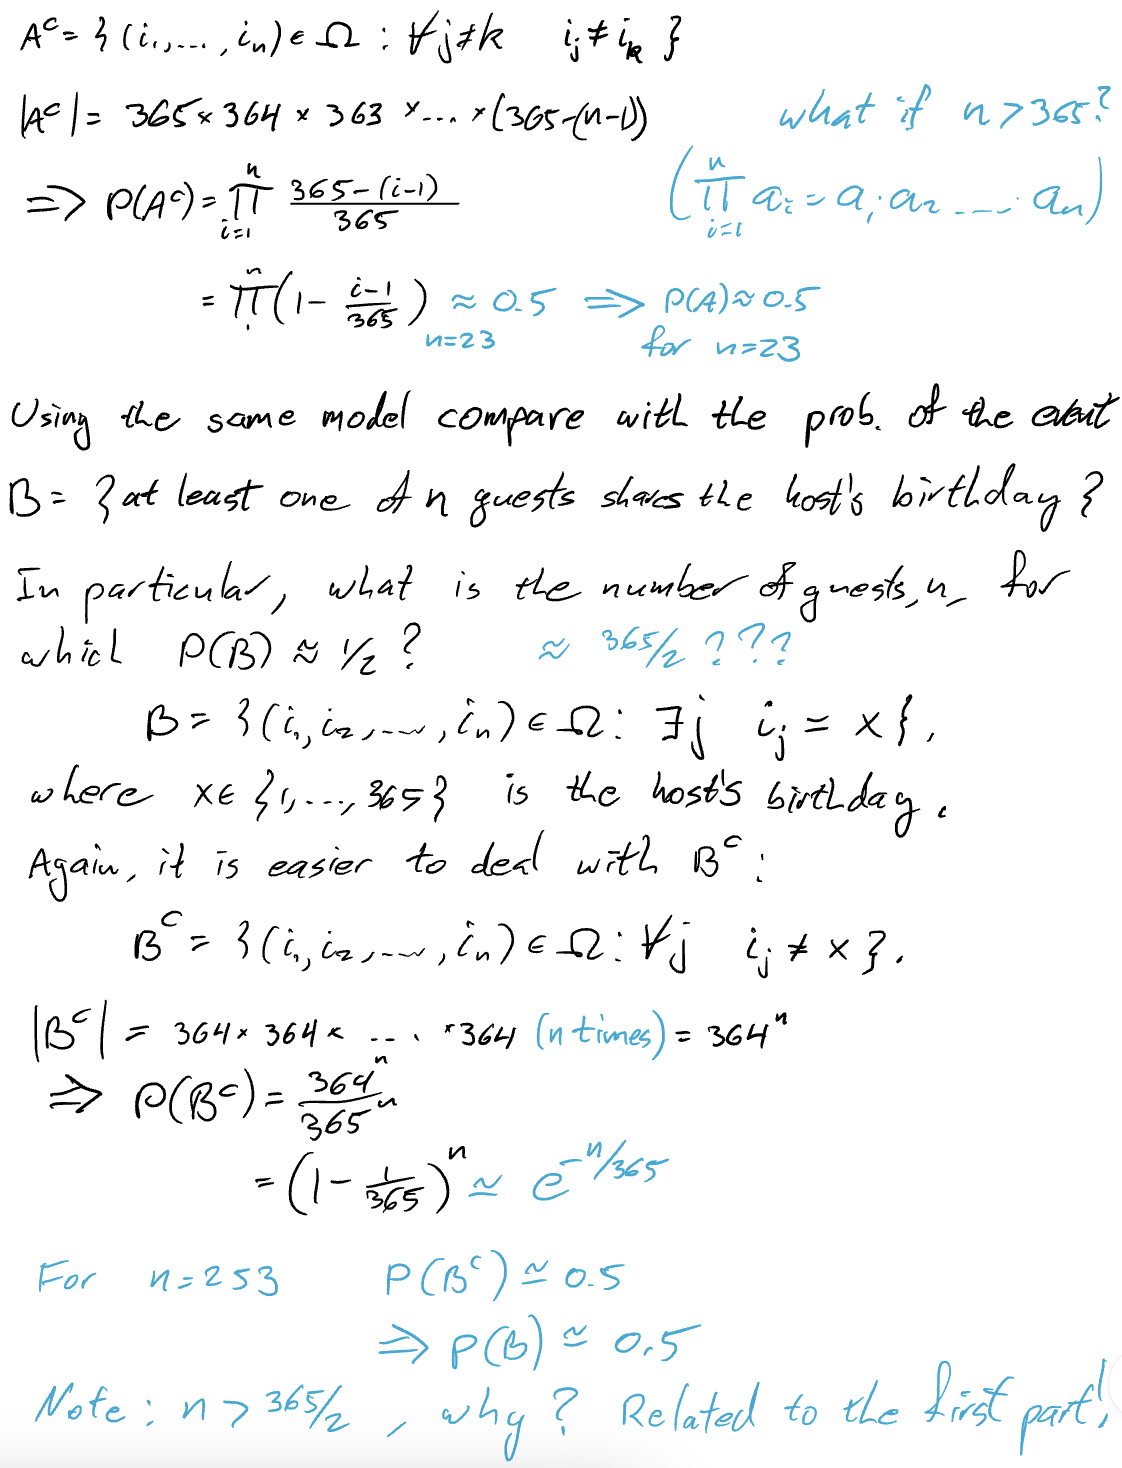 Aᶜ = { (i₁, ..., iₙ) ∈ Ω : ∀j≠k iⱼ ≠ iₖ }
|Aᶜ| = 365 × 364 × 363 × ... × (365-(n-1)) what if n > 365?
⇒ P(Aᶜ) = ∏ᵢ₌₁ⁿ (365-(i-1))/365 (∏ᵢ₌₁ⁿ aᵢ = a₁·a₂ ---· aₙ)
= ∏ⁿ (1 - (i-1)/365) ≈ 0.5 ⇒ P(A) ≈ 0.5
n=23 for n=23
Using the same model compare with the prob. of the event
B = { at least one of n guests shares the host's birthday }
In particular, what is the number of guests, n, for
which P(B) ≈ 1/2 ? ≈ 365/2 ???
B = { (i₁, i₂, ..., iₙ) ∈ Ω : ∃j iⱼ = x },
where x ∈ {1, ..., 365} is the host's birthday.
Again, it is easier to deal with Bᶜ :
Bᶜ = { (i₁, i₂, ..., iₙ) ∈ Ω : ∀j iⱼ ≠ x }.
|Bᶜ| = 364 × 364 × ... × 364 (n times) = 364ⁿ
⇒ P(Bᶜ) = 364ⁿ/365ⁿ
= (1 - 1/365)ⁿ ≃ e^(-n/365)
For n = 253 P(Bᶜ) ≃ 0.5
⇒ P(B) ≃ 0.5
Note: n > 365/2, why? Related to the first part!